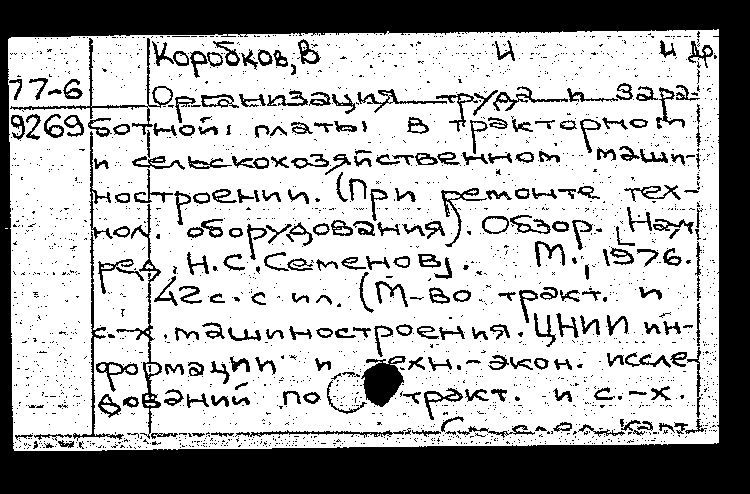 Коробков, В и и др.
77-6
Организация труда и зара-
9269 ботной платы в тракторном
и сельскохозяйственном маши-
ностроении. (При ремонте тех-
нол. оборудования). Обзор. [Науч.
ред. Н.С.Семенов]. М., 1976.
42с. с ил. (М-во тракт. и
с.-х. машиностроения. ЦНИИ ин-
формации и техн.-экон. иссле-
дований по тракт. и с.-х.
См. след. карт.